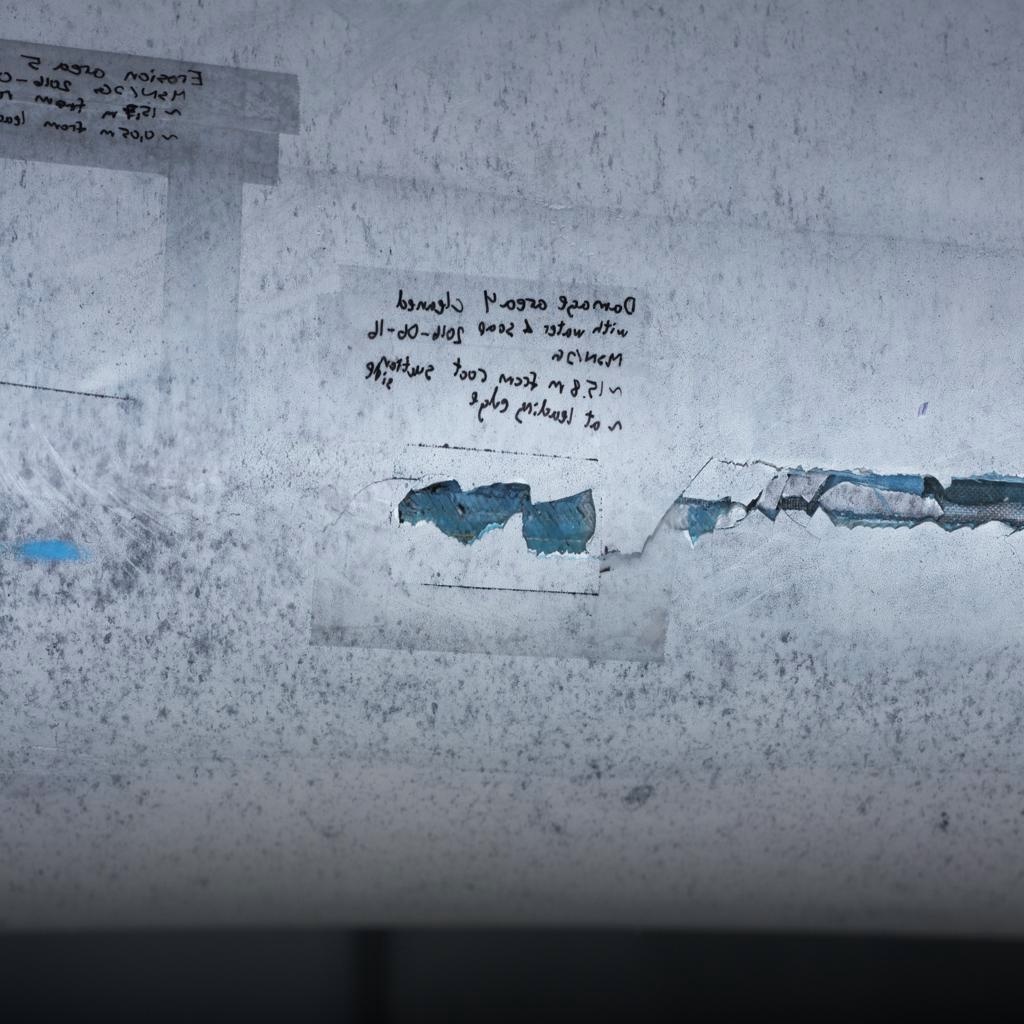 Erosion area 5
MSN/JG 2016-0
~ 15,8 m from r
~ 0,05 m from lead
Damage area 4 cleaned
with water & soap 2016-06-16
MSN/JG
~ 15.8 m from root suction side
~ at leading edge